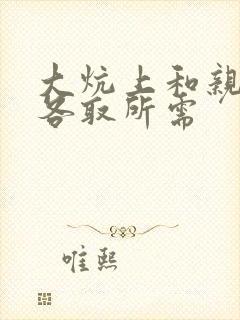 大炕上和亲
各取所需
唯熙